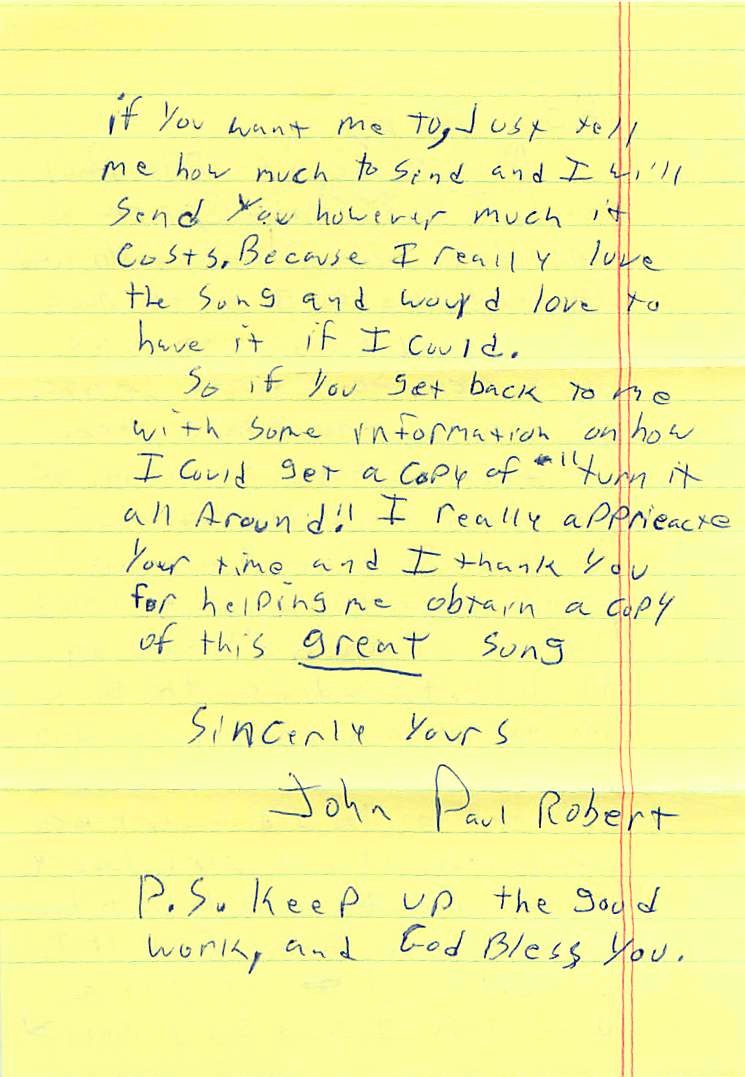 if you want me to, Just tell
me how much to send and I will
send you however much it
costs. Because I really love
the song and would love to
have it if I could.
So if you get back to me
with some information on how
I could get a copy of "turn it
all Around!! I really apprieacte
your time and I thank you
for helping me obtain a copy
of this great song
Sincerly Yours
John Paul Robert
P.S. Keep up the good
work, and God Bless You.